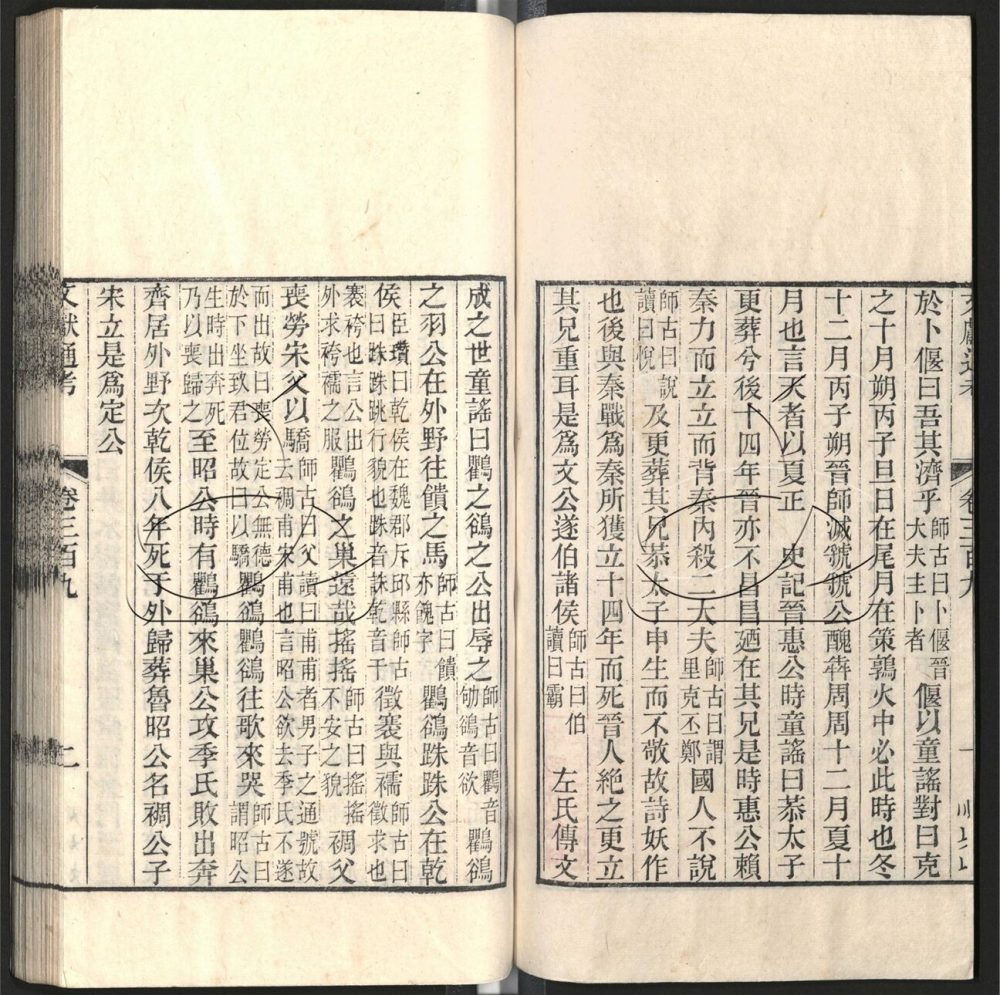 文獻通考 卷三百九 一
於卜偃曰吾其濟乎師古曰卜偃晉大夫主卜者偃以童謠對曰克
之十月朔丙子旦日在尾月在策鶉火中必此時也冬
十二月丙子朔晉師滅虢虢公醜犇周周十二月夏十
月也言天者以夏正 史記晉惠公時童謠曰恭太子
更葬兮後十四年晉亦不昌昌廼在其兄是時惠公賴
秦力而立立而背秦內殺二大夫師古曰謂里克丕鄭國人不說
師古曰說讀曰悅及更葬其兄恭太子申生而不敬故詩妖作
也後與秦戰爲秦所獲立十四年而死晉人絶之更立
其兄重耳是爲文公遂伯諸侯師古曰伯讀曰霸 左氏傳文
成之世童謠曰鸜之鵒之公出辱之師古曰鸜音劬鵒音欲鸜鵒
之羽公在外野往饋之馬師古曰饋亦餽字鸜鵒跦跦公在乾
侯臣瓚曰乾侯在魏郡斥邱縣師古曰跦跦跳行貌也跦音誅乾音干徵褰與襦師古曰徵求也
褰袴也言公出外求袴襦之服鸜鵒之巢遠哉搖搖師古曰搖搖不安之貌裯父
喪勞宋父以驕師古曰父讀曰甫甫者男子之通號故去裯甫宋甫也言昭公欲去季氏不遂
而出故曰喪勞定公無德於下坐致君位故曰以驕鸜鵒鸜鵒往歌來哭師古曰謂昭公
生時出奔死乃以喪歸之至昭公時有鸜鵒來巢公攻季氏敗出奔
齊居外野次乾侯八年死于外歸葬魯昭公名裯公子
宋立是爲定公
文獻通考 卷三百九 二